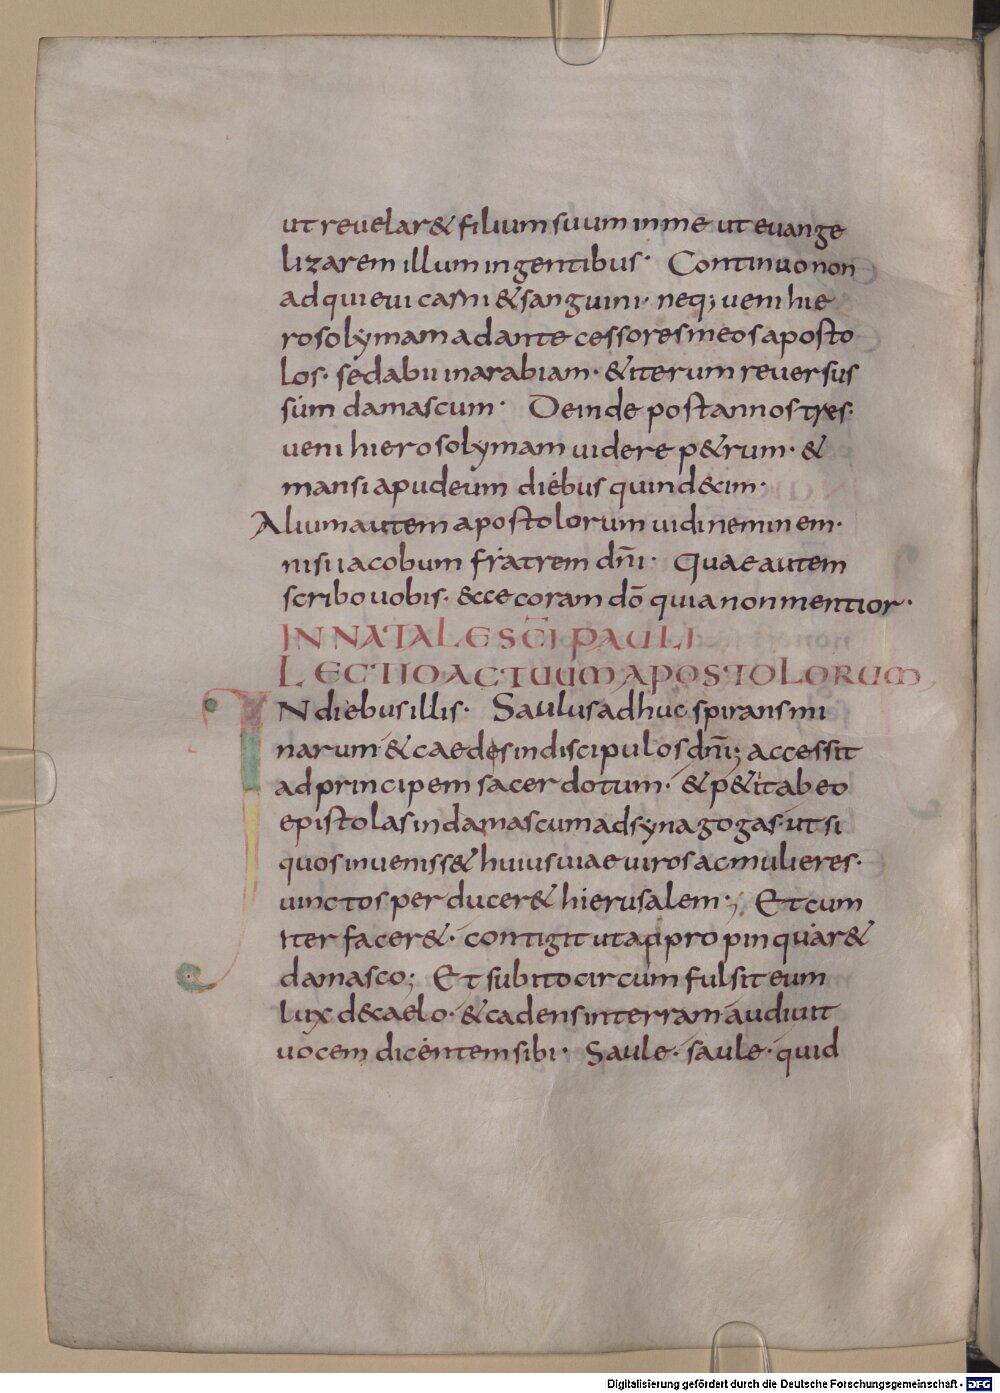 ut reuelar& filium suum in me ut euange
lizarem illum in gentibus· Continuo non
adquieui carni & sanguini· neq; ueni hie
rosolymam ad antecessores meos aposto
los· sed abii in arabiam· & iterum reuersus
sum damascum· Deinde post annos tres·
ueni hierosolymam uidere p&rum· &
mansi apud eum diebus quindecim·
Alium autem apostolorum uidi neminem·
nisi iacobum fratrem dn̄i· Quae autem
scribo uobis· &cce coram dō quia non mentior·
IN NATALE SC̄I PAULI
LECTIO ACTUUM APOSTOLORUM
IN diebus illis· Saulus adhuc spirans mi
narum & caedes in discipulos dn̄i; accessit
ad principem sacerdotum· & p&iit ab eo
epistolas in damascum ad synagogas· ut si
quos inueniss& huius uiae uiros ac mulieres·
uinctos perducer& hierusalem·; Et cum
iter facer&· contigit ut appropinquar&
damasco; Et subito circumfulsit eum
lux d& caelo· & cadens in terram audiuit
uocem dicentem sibi· Saule· saule· quid
Digitalisierung gefördert durch die Deutsche Forschungsgemeinschaft - DFG